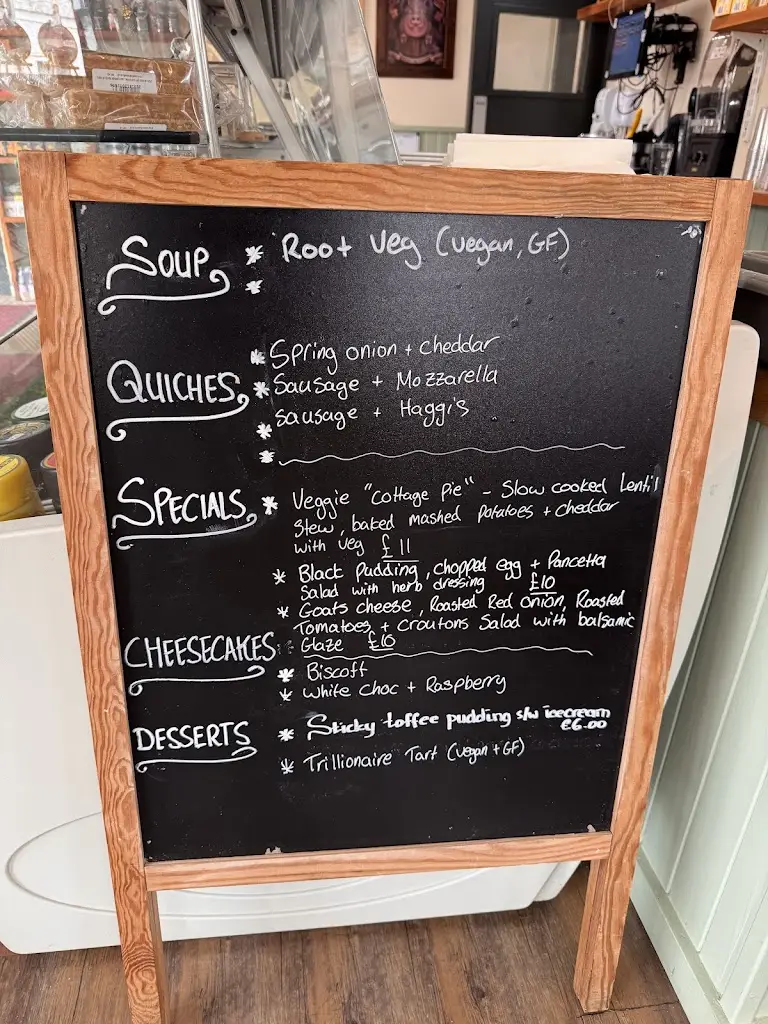 SOUP * Root Veg (vegan, GF)
*
* Spring onion + cheddar
QUICHES * Sausage + Mozzarella
* sausage + Haggis
*
SPECIALS * Veggie "Cottage Pie" - Slow cooked Lentil
Stew, baked mashed potatoes + cheddar
with veg £11
* Black Pudding, chopped egg + Pancetta
Salad with herb dressing £10
* Goats cheese, Roasted Red onion, Roasted
Tomatoes + croutons Salad with balsamic
Glaze £10
CHEESECAKES * Biscoff
* White choc + Raspberry
DESSERTS * Sticky toffee pudding s/w icecream
£6.00
* Trillionaire Tart (vegan + GF)